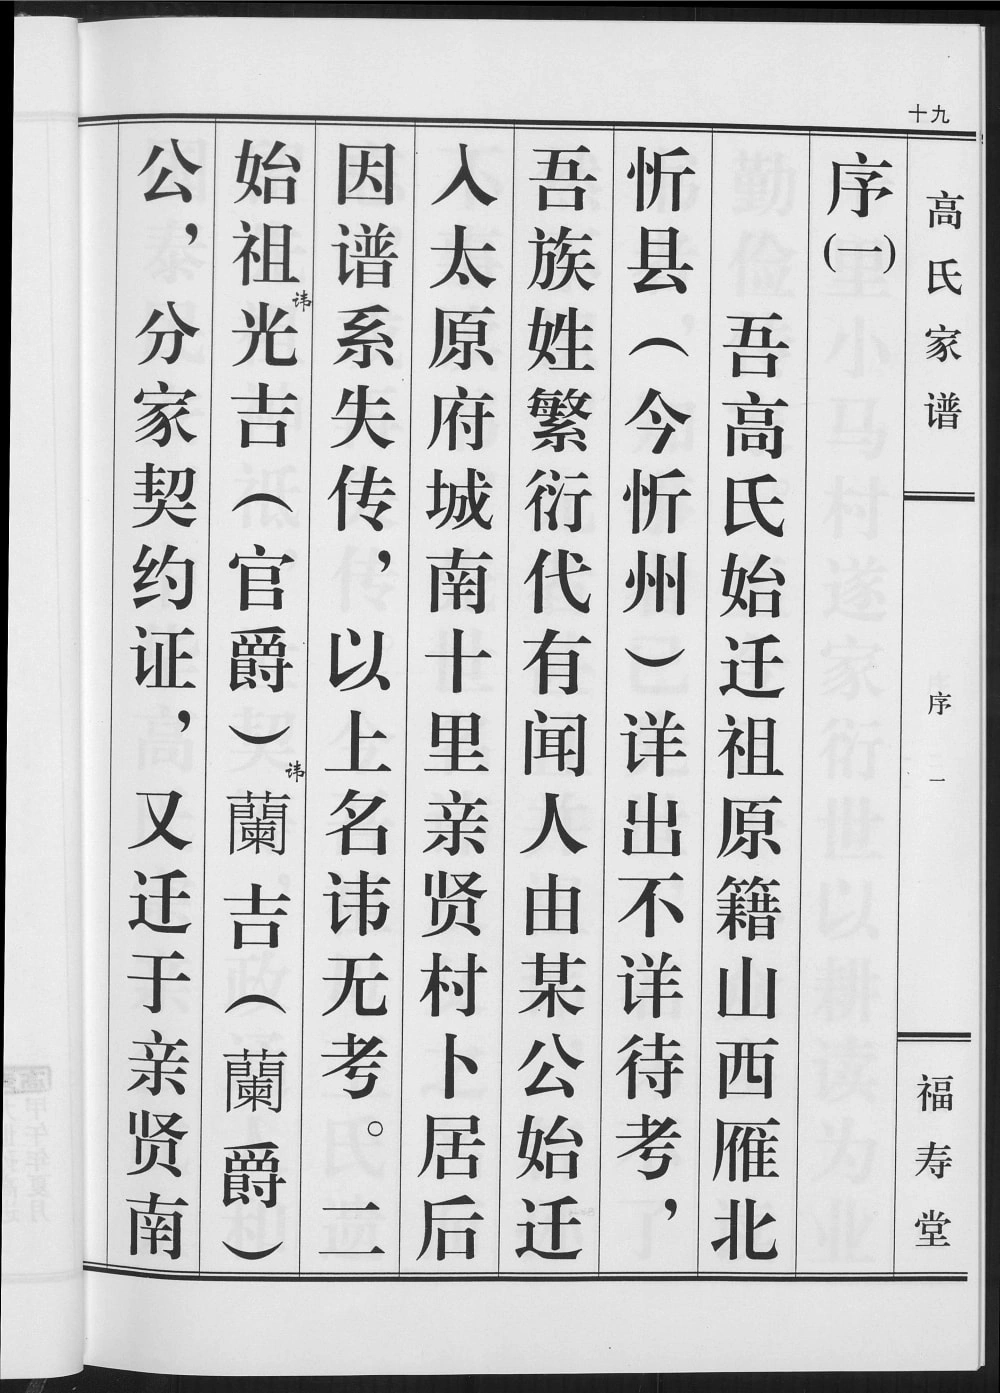 十九
高氏家谱
序一
福寿堂
序(一)
吾高氏始迁祖原籍山西雁北
忻县(今忻州)详出不详待考,
吾族姓繁衍代有闻人由某公始迁
入太原府城南十里亲贤村卜居后
因谱系失传,以上名讳无考。二
始祖讳光吉(官爵)讳蘭吉(蘭爵)
公,分家契约证,又迁于亲贤南